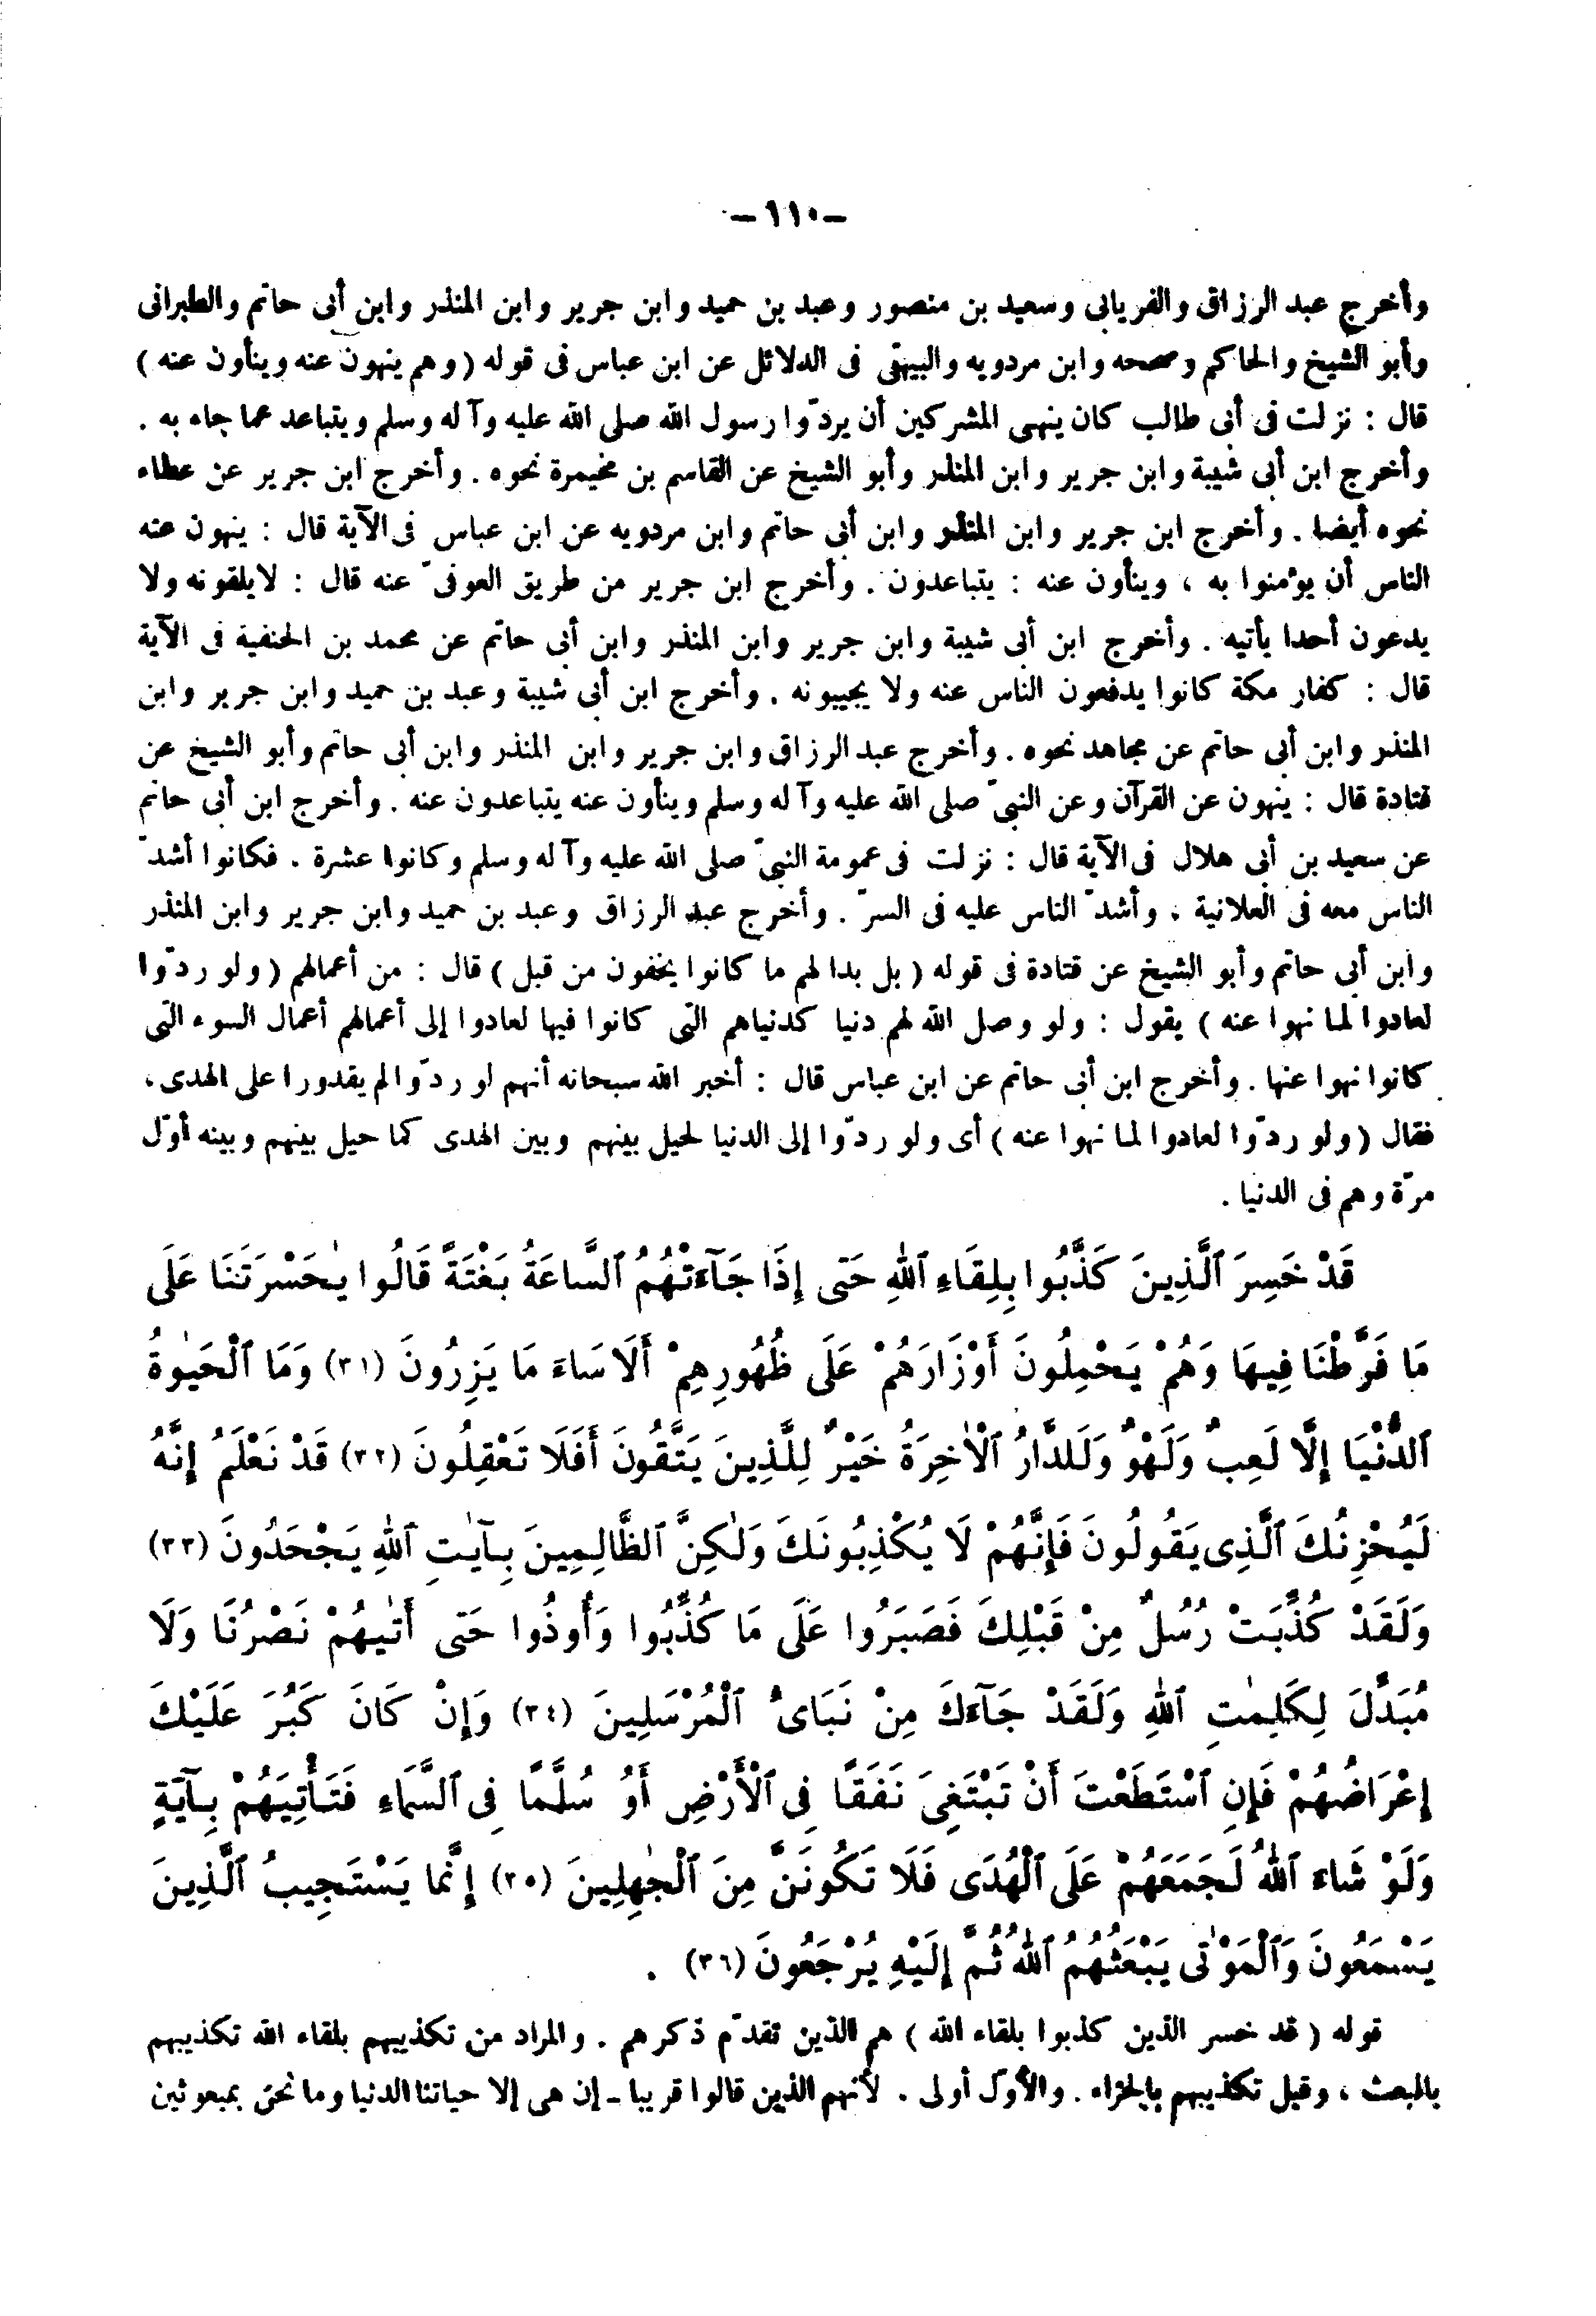 -١١٠-
وأخرج عبد الرزاق والفريابى وسعيد بن منصور وعبد بن حميد وابن جرير وابن المنذر وابن أبى حاتم والطبرانى
وأبو الشيخ والحاكم وصححه وابن مردويه والبيهقى فى الدلائل عن ابن عباس فى قوله ( وهم ينهون عنه وينأون عنه )
قال : نزلت فى أبى طالب كان ينهى المشركين أن يردّوا رسول الله صلى الله عليه وآله وسلم ويتباعد عما جاء به .
وأخرج ابن أبى شيبة وابن جرير وابن المنذر وأبو الشيخ عن القاسم بن مخيمرة نحوه . وأخرج ابن جرير عن عطاء
نحوه أيضا . وأخرج ابن جرير وابن المنذر وابن أبى حاتم وابن مردويه عن ابن عباس فى الآية قال : ينهون عنه
الناس أن يؤمنوا به ، وينأون عنه : يتباعدون . وأخرج ابن جرير من طريق العوفىّ عنه قال : لايلقونه ولا
يدعون أحدا يأتيه . وأخرج ابن أبى شيبة وابن جرير وابن المنذر وابن أبى حاتم عن محمد بن الحنفية فى الآية
قال : كفار مكة كانوا يدفعون الناس عنه ولا يجيبونه . وأخرج ابن أبى شيبة وعبد بن حميد وابن جرير وابن
المنذر وابن أبى حاتم عن مجاهد نحوه . وأخرج عبد الرزاق وابن جرير وابن المنذر وابن أبى حاتم وأبو الشيخ عن
قتادة قال : ينهون عن القرآن وعن النبىّ صلى الله عليه وآله وسلم وينأون عنه يتباعدون عنه . وأخرج ابن أبى حاتم
عن سعيد بن أبى هلال فى الآية قال : نزلت فى عمومة النبىّ صلى الله عليه وآله وسلم وكانوا عشرة . فكانوا أشدّ
الناس معه فى العلانية ، وأشدّ الناس عليه فى السرّ . وأخرج عبد الرزاق وعبد بن حميد وابن جرير وابن المنذر
وابن أبى حاتم وأبو الشيخ عن قتادة فى قوله ( بل بدا لهم ما كانوا يخفون من قبل ) قال : من أعمالهم ( ولو ردّوا
لعادوا لما نهوا عنه ) يقول : ولو وصل الله لهم دنيا كدنياهم التى كانوا فيها لعادوا إلى أعمالهم أعمال السوء التى
كانوا نهوا عنها . وأخرج ابن أبى حاتم عن ابن عباس قال : أخبر الله سبحانه أنهم لو ردّوا لم يقدورا على الهدى ،
فقال ( ولو ردّوا لعادوا لما نهوا عنه ) أى ولو ردّوا إلى الدنيا لحيل بينهم وبين الهدى كما حيل بينهم وبينه أوّل
مرّة وهم فى الدنيا .
قَدْ خَسِرَ ٱلَّذِينَ كَذَّبُوا بِلِقَاءِ ٱللهِ حَتى إِذَا جَآءَتْهُمُ ٱلسَّاعَةُ بَغْتَةً قَالُوا يٰحَسْرَتَنَا عَلَى
مَا فَرَّطْنَا فِيهَا وَهُمْ يَحْمِلُونَ أَوْزَارَهُمْ عَلَى ظُهُورِهِمْ أَلَا سَاءَ مَا يَزِرُونَ (٣١) وَمَا ٱلْحَيٰوةُ
ٱلدُّنْيَا إِلَّا لَعِبٌ وَلَهْوٌ وَلَلدَّارُ ٱلْاٰخِرَةُ خَيْرٌ لِلَّذِينَ يَتَّقُونَ أَفَلَا تَعْقِلُونَ (٣٢) قَدْ نَعْلَمُ إِنَّهُ
لَيُحْزِنُكَ ٱلَّذِى يَقُولُونَ فَإِنَّهُمْ لَا يُكْذِبُونَكَ وَلٰكِنَّ ٱلظَّالِمِينَ بِآيٰتِ ٱللهِ يَجْحَدُونَ (٣٣)
وَلَقَدْ كُذِّبَتْ رُسُلٌ مِنْ قَبْلِكَ فَصَبَرُوا عَلَى مَا كُذِّبُوا وَأُوذُوا حَتى أَتٰيهُمْ نَصْرُنَا وَلَا
مُبَدِّلَ لِكَلِمٰتِ ٱللهِ وَلَقَدْ جَآءَكَ مِنْ نَبَاىُٔ ٱلْمُرْسَلِينَ (٣٤) وَإِنْ كَانَ كَبُرَ عَلَيْكَ
إِعْرَاضُهُمْ فَإِنِ ٱسْتَطَعْتَ أَنْ تَبْتَغِىَ نَفَقًا فِى ٱلْأَرْضِ أَوْ سُلَّمًا فِى ٱلسَّمَاءِ فَتَأْتِيَهُمْ بِآيَةٍ
وَلَوْ شَاءَ ٱللهُ لَجَمَعَهُمْ عَلَى ٱلْهُدَى فَلَا تَكُونَنَّ مِنَ ٱلْجٰهِلِينَ (٣٥) إِنَّمَا يَسْتَجِيبُ ٱلَّذِينَ
يَسْمَعُونَ وَٱلْمَوْتٰى يَبْعَثُهُمُ ٱللهُ ثُمَّ إِلَيْهِ يُرْجَعُونَ (٣٦) .
قوله ( قد خسر الذين كذبوا بلقاء الله ) هم الذين تقدّم ذكرهم . والمراد من تكذيبهم بلقاء الله تكذيبهم
بالبعث ، وقيل تكذيبهم بالجزاء . والأوّل أولى . لأنهم الذين قالوا قريبا ـ إن هى إلا حياتنا الدنيا وما نحن بمبعوثين